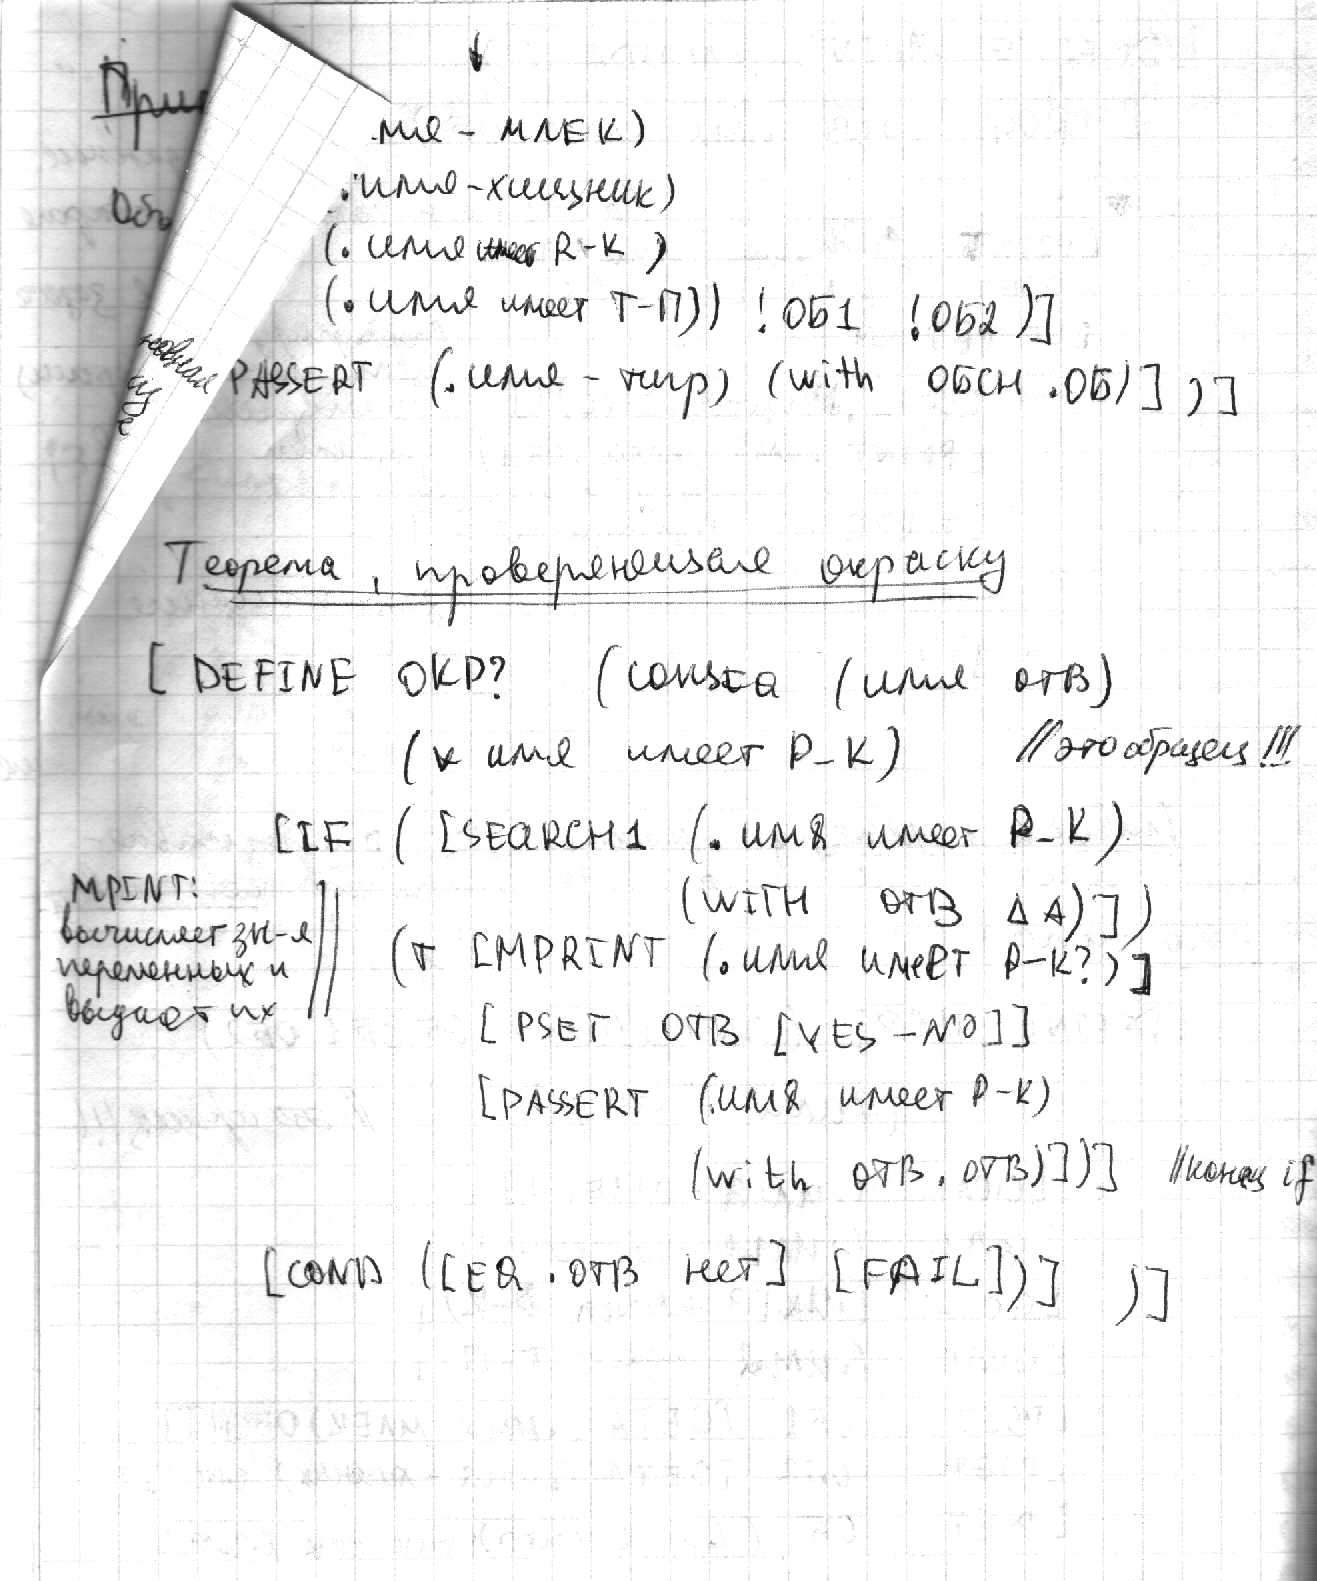 При
.мя - МЛЕК)
Объ
.имя-хищник)
(. имя имеет R-K )
(. имя имеет Т-П)) !ОБ1 !ОБ2 )]
PASSERT (.имя - тигр) (with ОБСН .ОБ)] )]
Теорема, проверяющая окраску
[ DEFINE ОКР? (CONSEQ (имя ОТВ)
(* имя имеет Р-К) //это образец!!!
[IF ( [SEARCH1 (. имя имеет Р-К)
(WITH ОТВ ДА)])
MPINT:
вычисляет зн-я
переменных и
выдает их
(T [MPRINT (.имя имеет Р-К?)]
[PSET ОТВ [YES-NO]]
[PASSERT (.имя имеет Р-К)
(with ОТВ .ОТВ)])] //конец if
[COND ([EQ .ОТВ нет] [FAIL])] )]